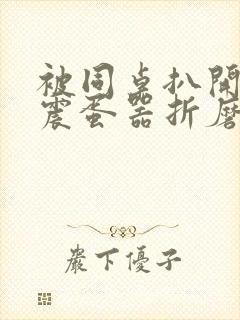 被同桌扒開
震蛋器折磨
嚴下優子